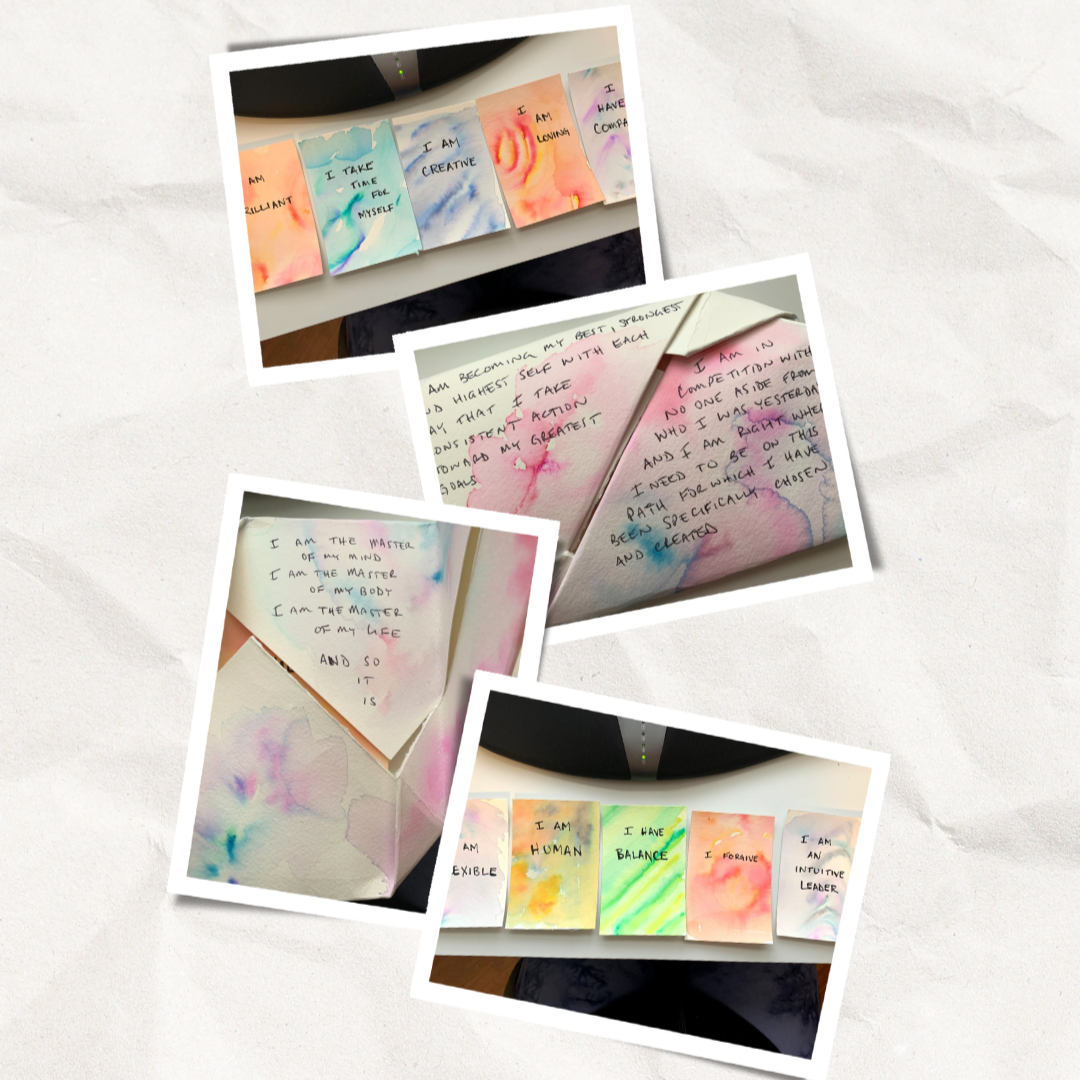 AM
RILLIANT
I TAKE
TIME
FOR
MYSELF
I AM
CREATIVE
I
AM
LOVING
I
HAVE
COMPA
AM BECOMING MY BEST, STRONGEST
ND HIGHEST SELF WITH EACH
AY THAT I TAKE
ONSISTENT ACTION
TOWARD MY GREATEST
GOALS
I AM IN
COMPETITION WITH
NO ONE ASIDE FROM
WHO I WAS YESTERDA
AND I AM RIGHT WHE
I NEED TO BE ON THIS
PATH FOR WHICH I HAVE
BEEN SPECIFICALLY CHOSEN
AND CREATED
I AM THE MASTER
OF MY MIND
I AM THE MASTER
OF MY BODY
I AM THE MASTER
OF MY LIFE
AND SO
IT
IS
AM
EXIBLE
I AM
HUMAN
I HAVE
BALANCE
I FORGIVE
I AM
AN
INTUITIVE
LEADER